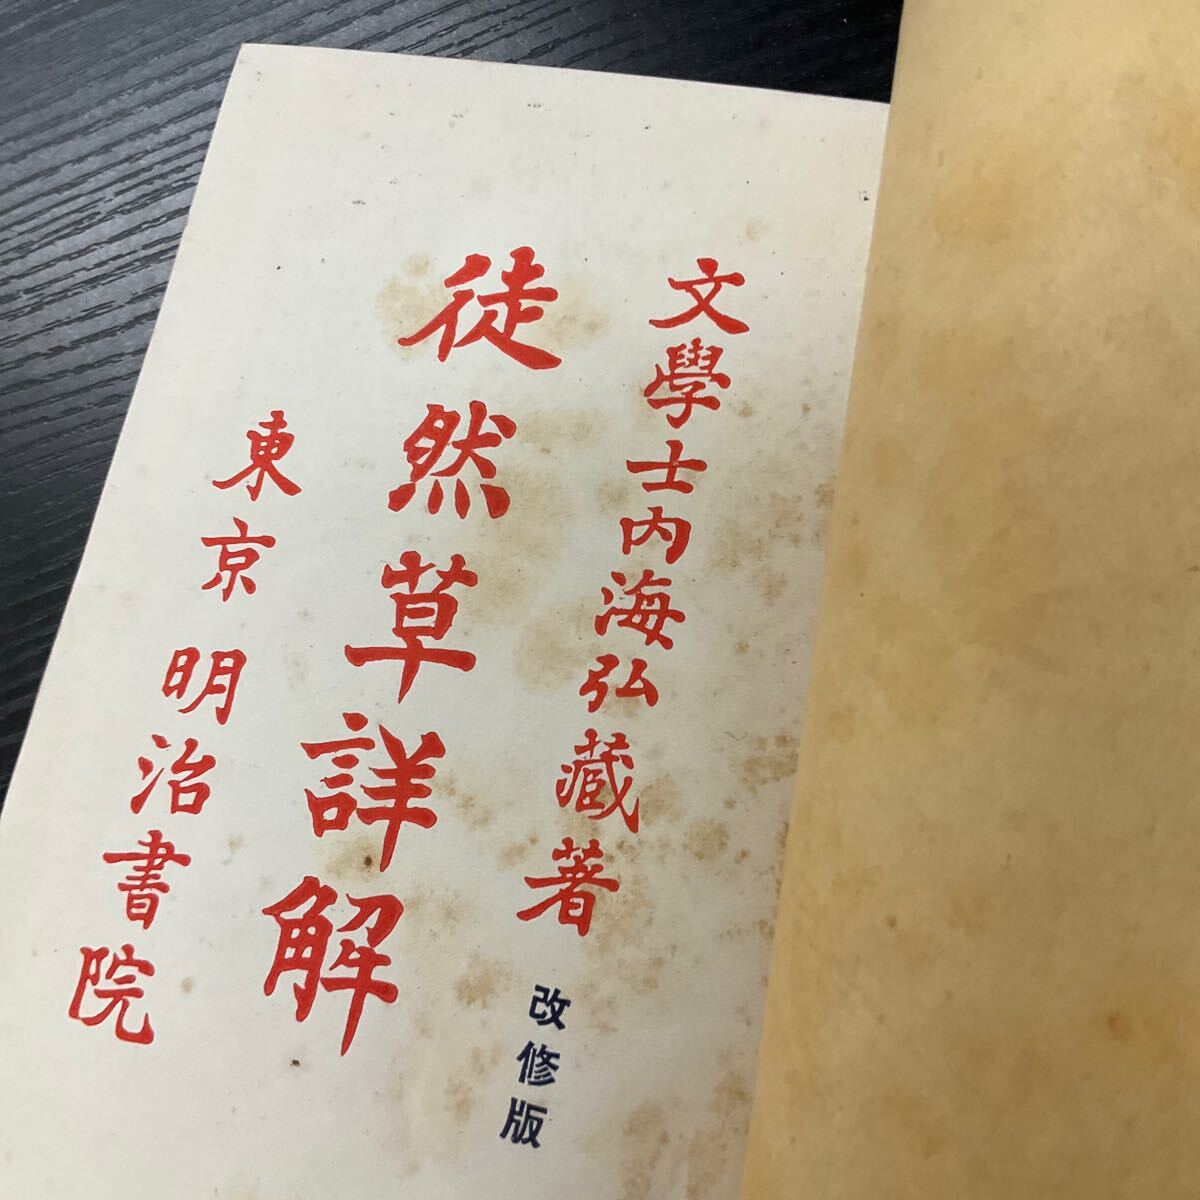 文學士内海弘藏著
改修版
徒然草詳解
東京 明治書院